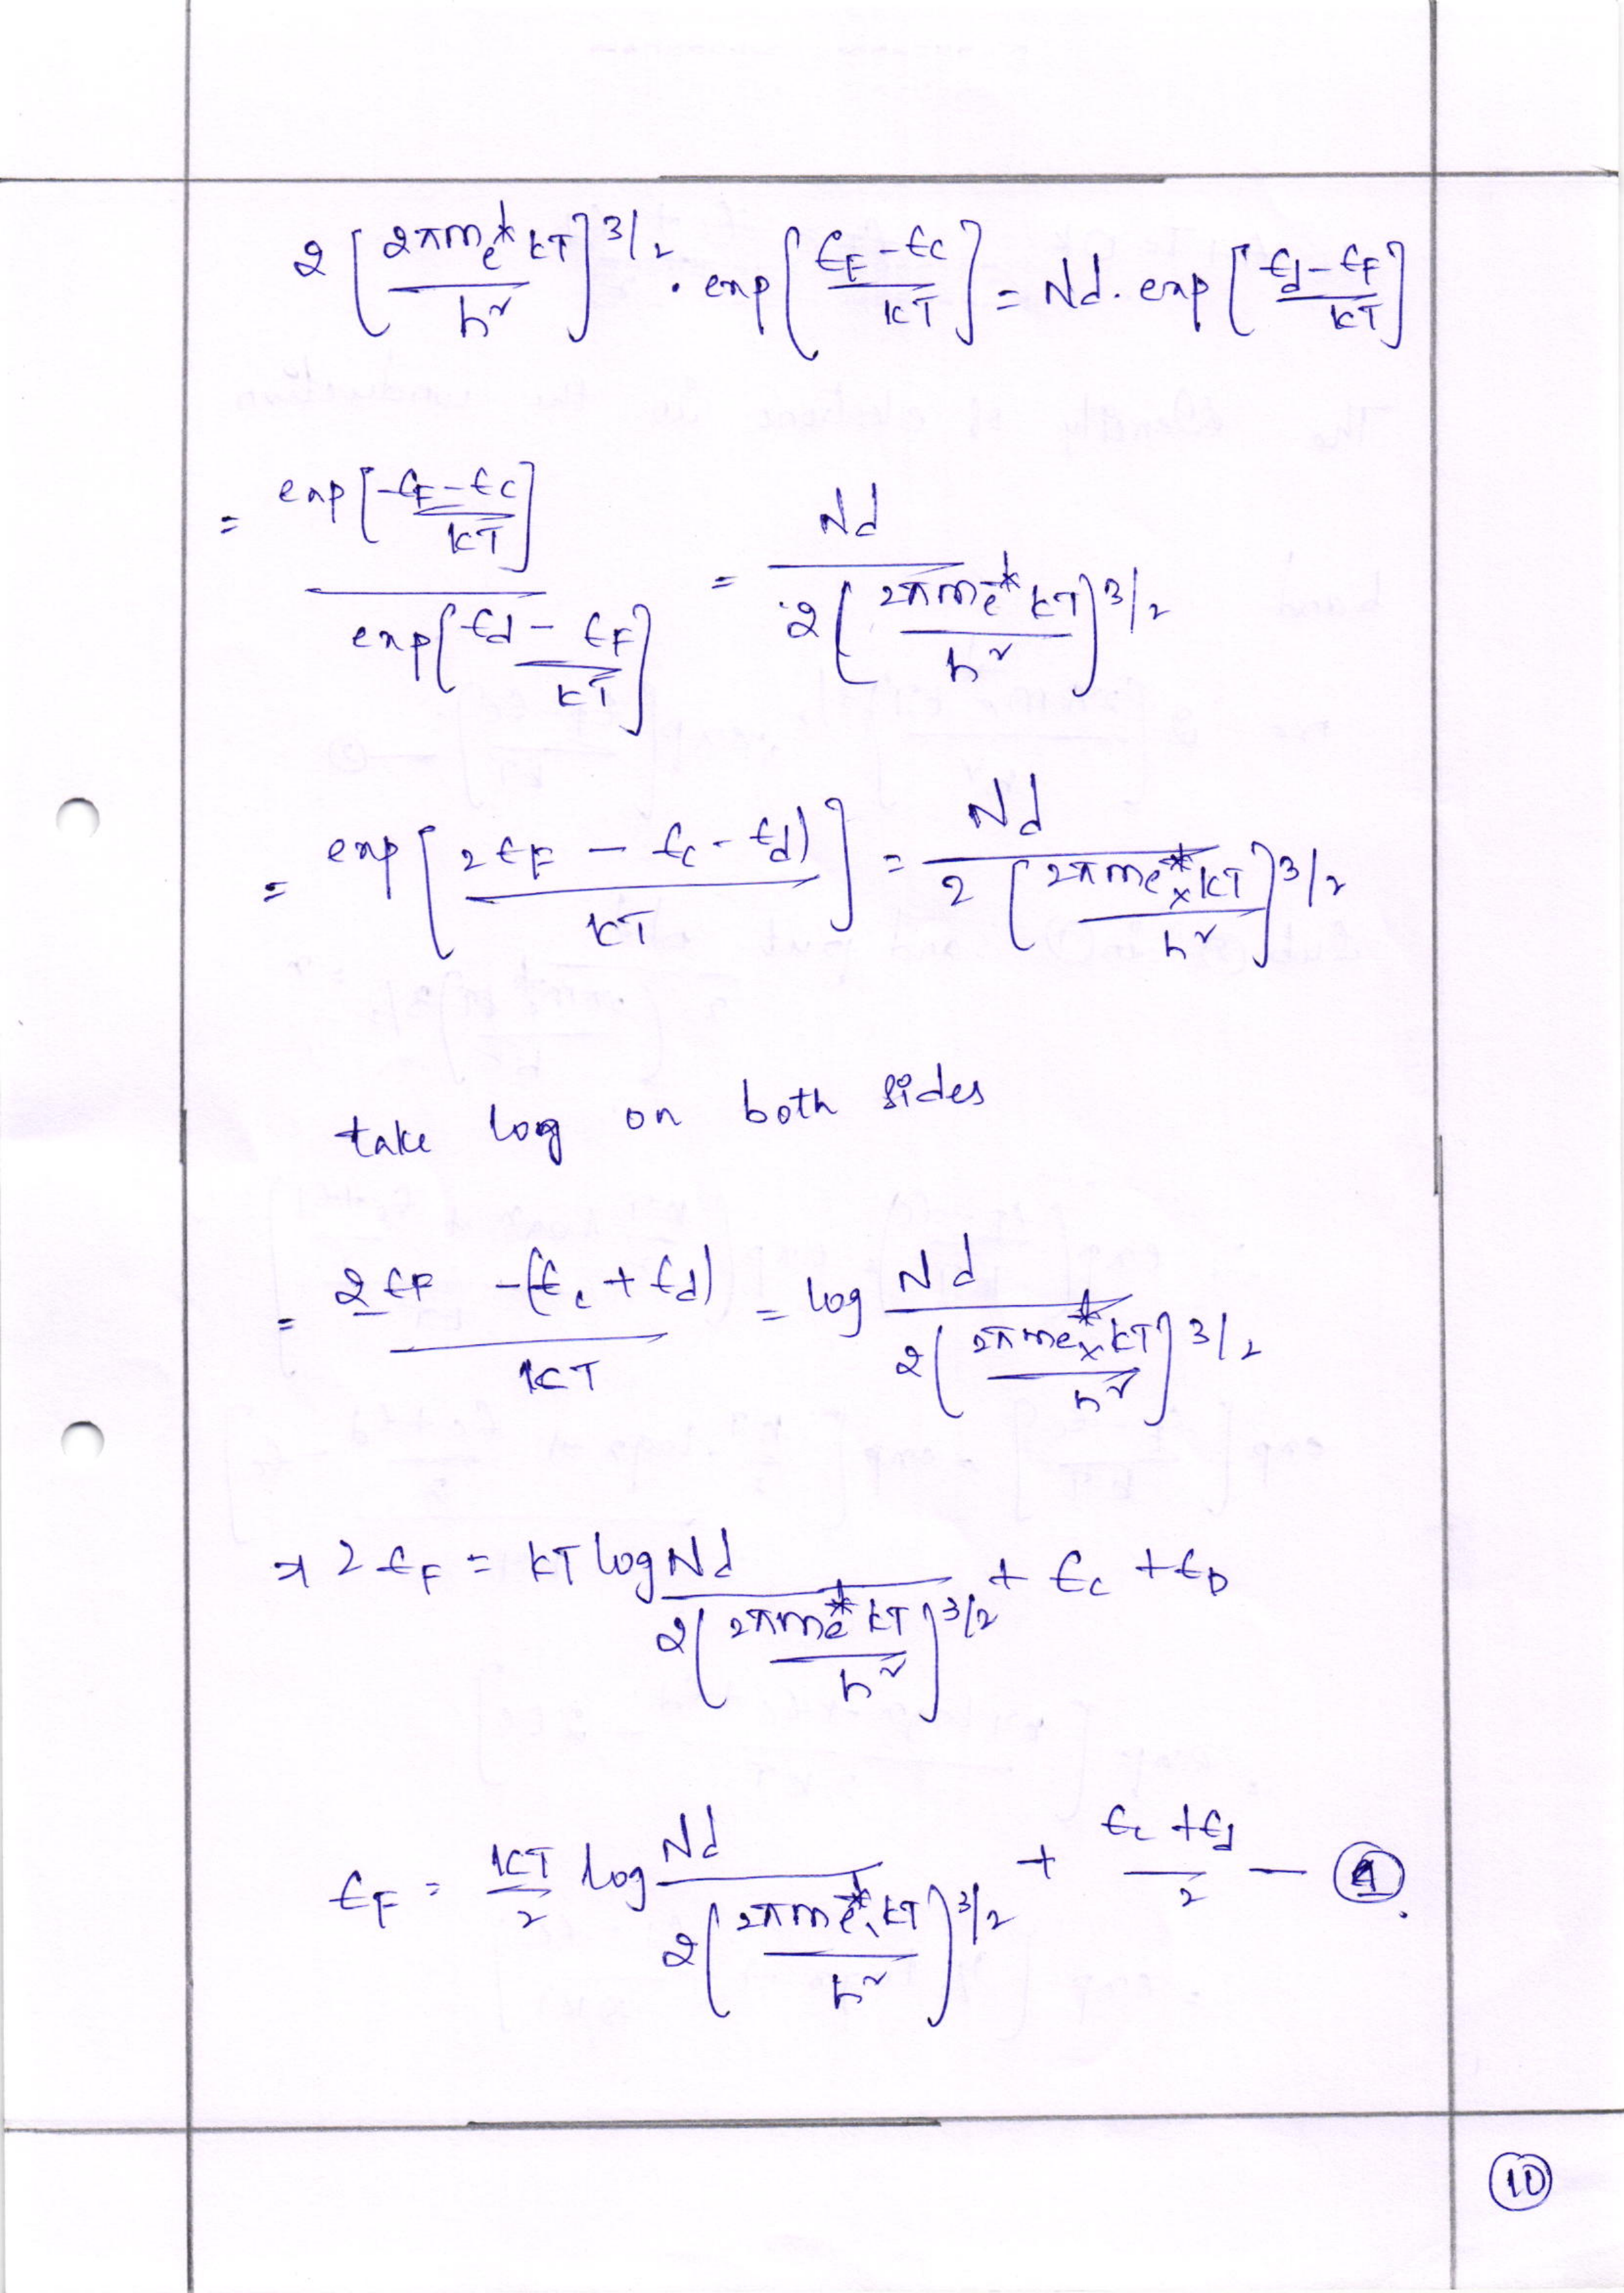 2 [2πme* kT / h²]^3/2 . exp [EF - Ec / kT] = Nd . exp [Ed - EF / kT]
= exp [EF - Ec / kT] / exp [Ed - EF / kT] = Nd / 2 [2πme* kT / h²]^3/2
= exp [2EF - Ec - Ed) / kT] = Nd / 2 [2πme* x kT / h²]^3/2
take log on both sides
= 2EF - (Ec + Ed) / kT = log Nd / 2 [2πme* x kT / h²]^3/2
⇒ 2EF = kT log Nd / 2 [2πme* kT / h²]^3/2 + Ec + ED
EF = kT/2 log Nd / 2 [2πme* kT / h²]^3/2 + Ec + Ed / 2 — 4.
10